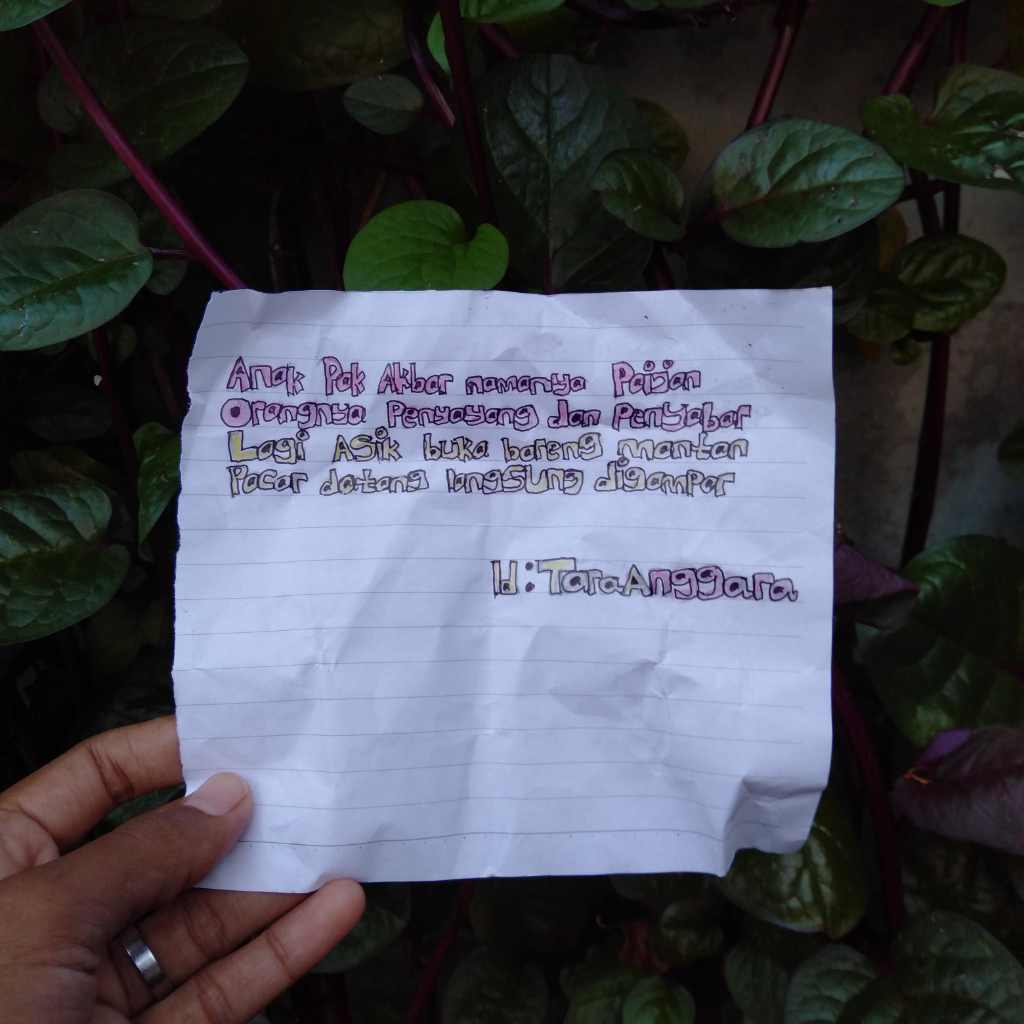 Anak Pak Akbar namanya Paijan
Orangnya Penyayang dan Penyabar
Lagi Asik buka bareng mantan
Pacar datang langsung digampar
Id : TaraAnggara